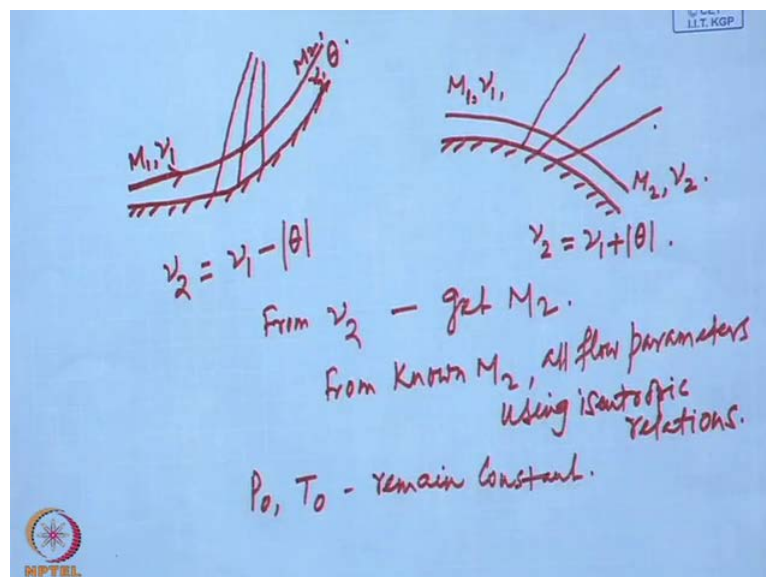 I.I.T. KGP
M₁, ν₁
M₂, ν₂
θ.
M₁, ν₁,
M₂, ν₂.
ν₂ = ν₁ - |θ|
ν₂ = ν₁ + |θ|.
From ν₂ – get M₂.
From Known M₂, all flow parameters
Using isentropic
relations.
P₀, T₀ - remain constant.
NPTEL